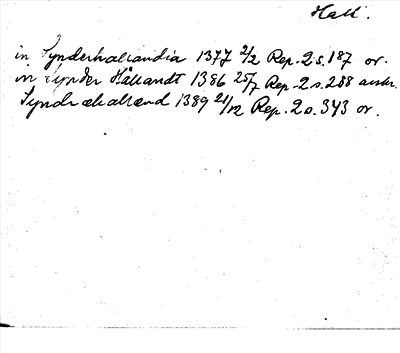 Hall.
in Synderhallandia 1377 2/2 Rep. 2 s. 187 or.
in Synder Hallandt 1386 25/7 Rep. 2 s. 288 avskr.
Syndræhalland 1389 21/12 Rep. 2 s. 343 or.